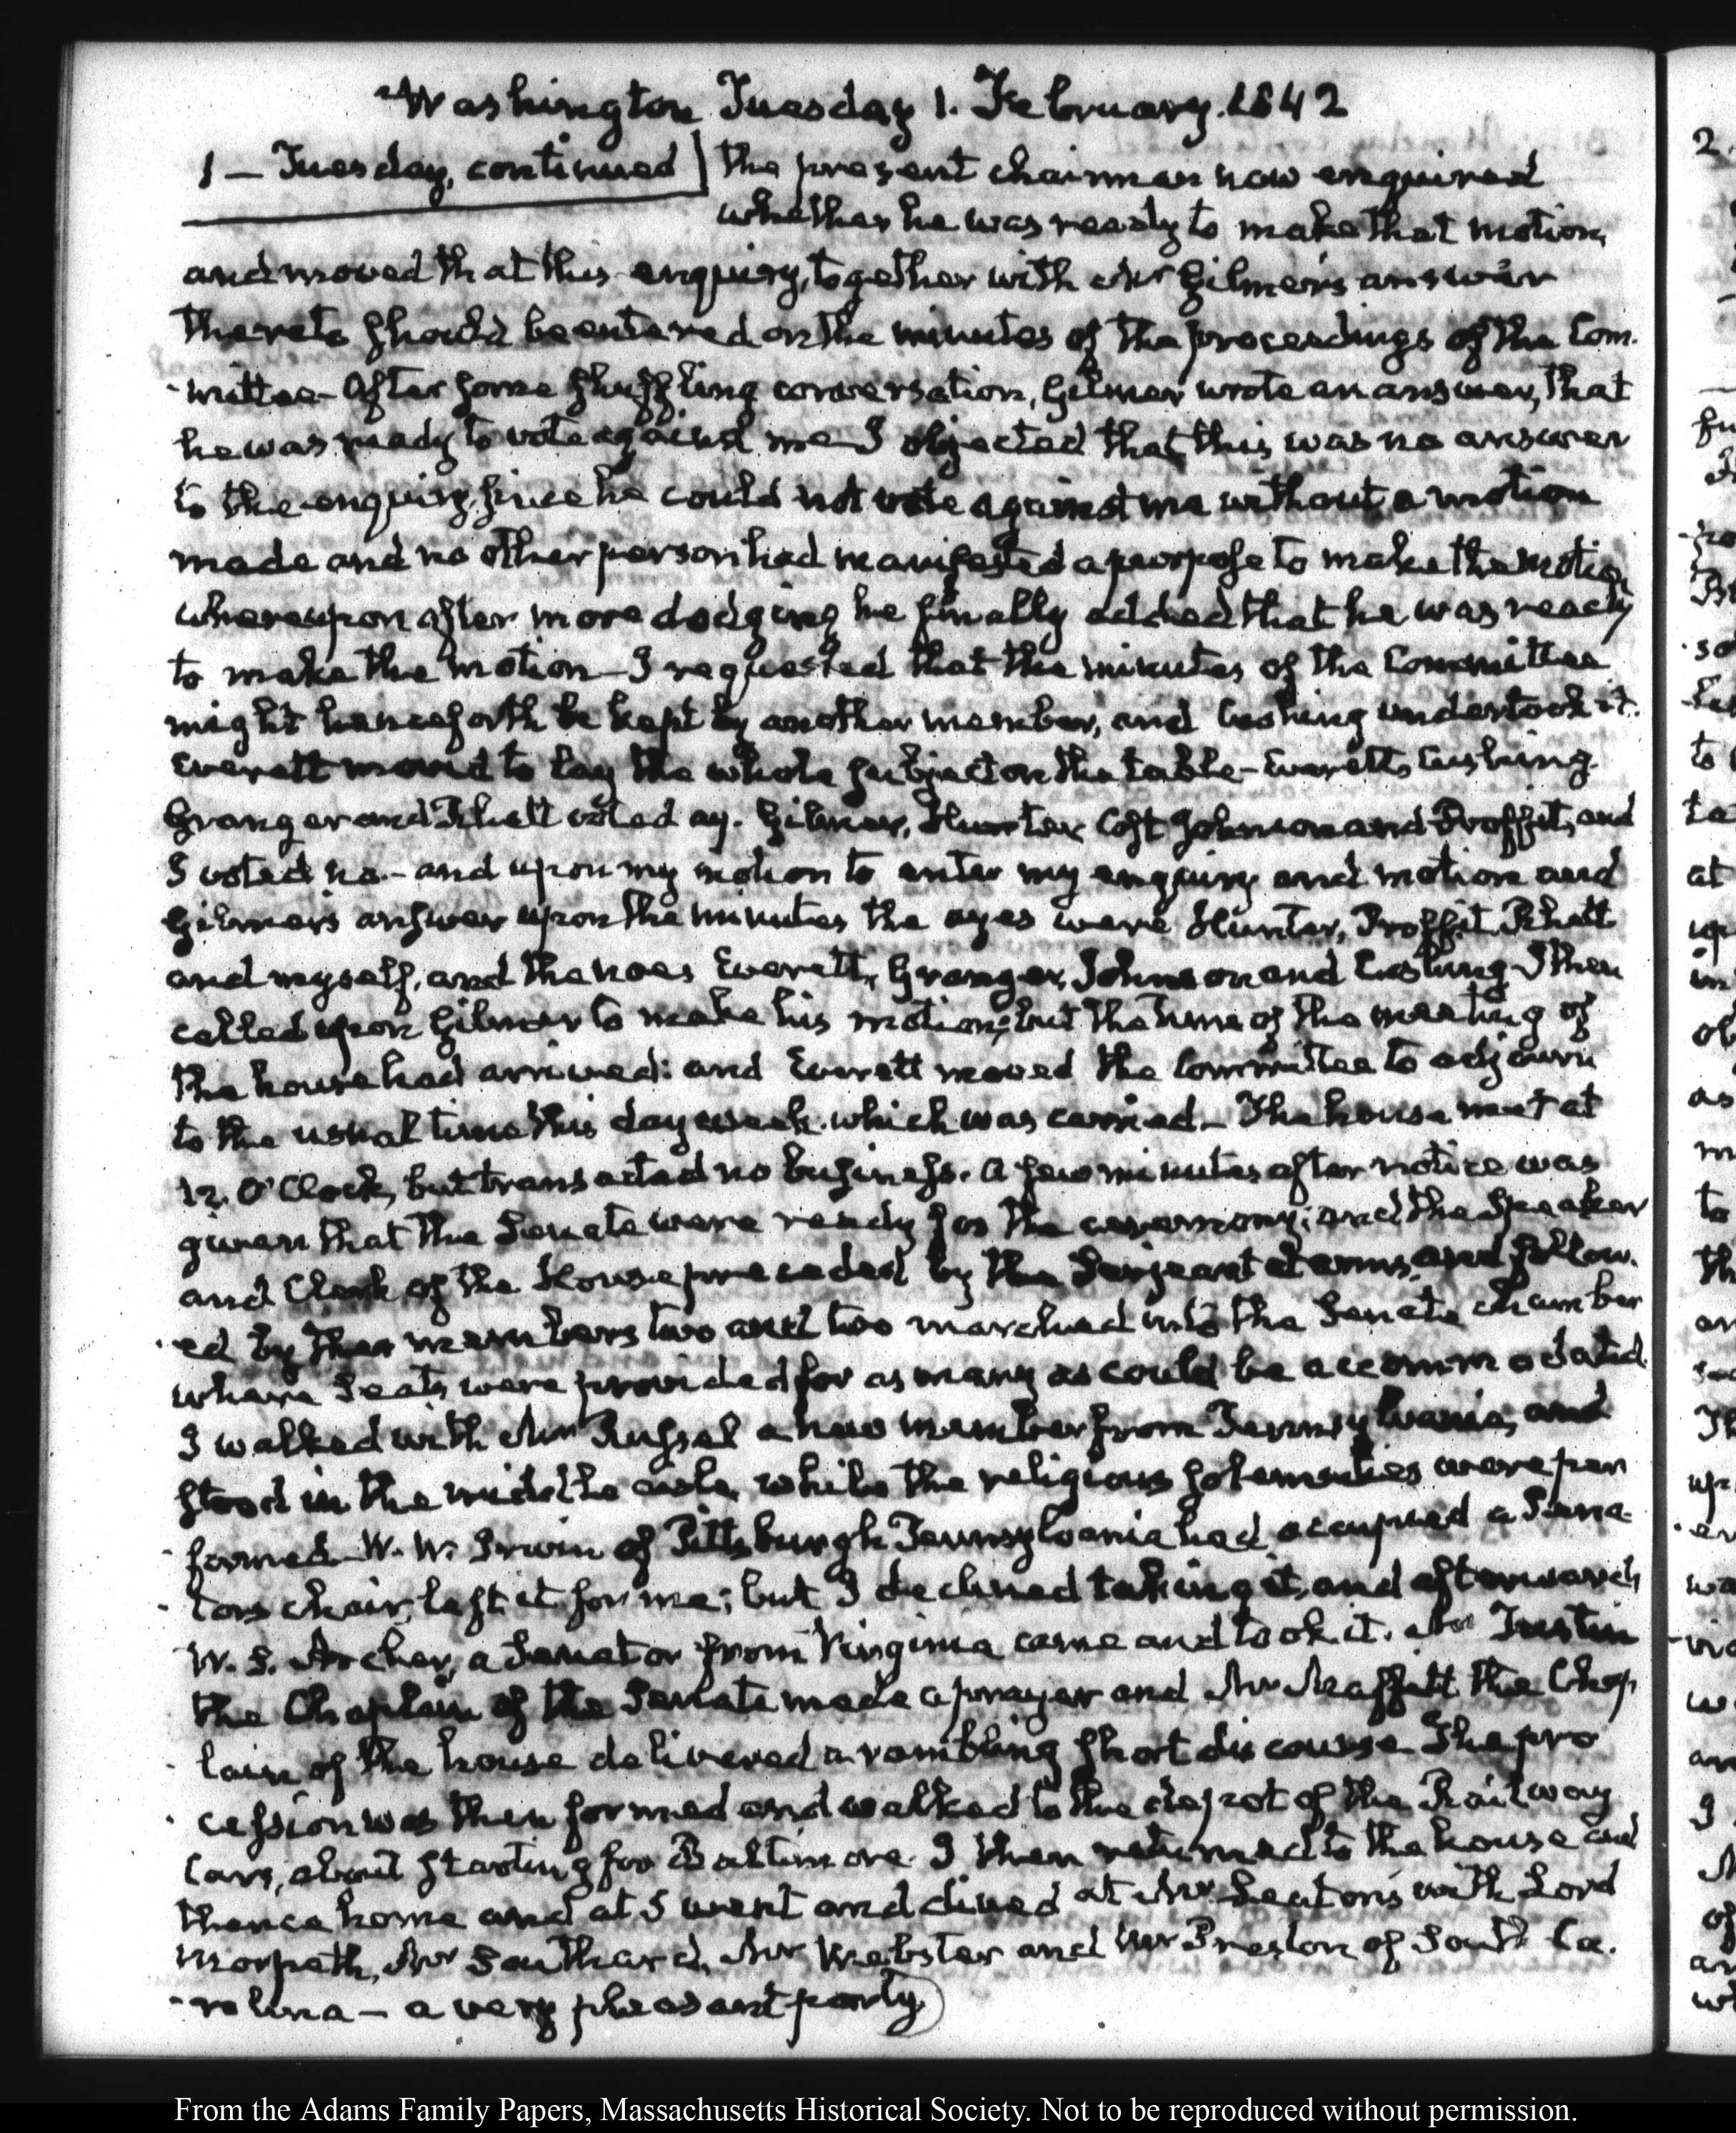 Washington Tuesday 1. February. 1842
1 — Tuesday, continued] the present chairman now enquired
whether he was ready to make that motion,
and moved that this enquiry, together with Mr Gilmer's answer
thereto should be entered on the minutes of the proceedings of the Com-
-mittee - After some shuffling conversation, Gilmer wrote an answer, that
he was ready to vote against me I objected that this was no answer
to the enquiry, since he could not vote against me without a motion
made and no other person had manifested a purpose to make the motion
whereupon after more dodging he finally added that he was ready
to make the motion - I requested that the minutes of the Committee
might henceforth be kept by another member, and Cushing undertook it.
Everett moved to lay the whole subject on the table - Everett, Cushing
Granger and Rhett voted ay. Gilmer, Hunter, Cost Johnson and Proffit, and
I voted no. - and upon my motion to enter my enquiry and motion and
Gilmer's answer upon the minutes the ayes were Hunter, Proffit Rhett
and myself, and the noes Everett, Granger, Johnson and Cushing. I then
called upon Gilmer to make his motion; but the time of the meeting of
the house had arrived: and Everett moved the Committee to adjourn
to the usual time this day week. which was carried. - The house met at
12. O'Clock, but transacted no business. A few minutes after notice was
given that the Senate were ready for the ceremony; and the Speaker
and Clerk of the House preceded by the Serjeant at arms, and follow-
-ed by the members two and two marched into the Senate chamber
where seats were provided for as many as could be accommodated.
I walked with Mr Russel a new member from Pennsylvania, and
stood in the middle aisle while the religious solemnities were per
-formed. W. W. Irwin of Pittsburgh Pennsylvania had occupied a Sena-
-tors chair, left it for me; but I declined taking it, and afterwards
W. S. Archer, a Senator from Virginia came and took it. Mr Tustin
the Chaplain of the Senate made a prayer and Mr Maffitt the Chap
-lain of the house delivered a rambling short discourse The pro
-cession was then formed and walked to the depot of the Railway
Cars, about starting for Baltimore. I then returned to the house and
thence home and at 5 went and dined at Mr Seaton's with Lord
Morpeth, Mr Southard, Mr Webster and Mr Preston of South Ca-
-rolina - a very pleasant party.
From the Adams Family Papers, Massachusetts Historical Society. Not to be reproduced without permission.